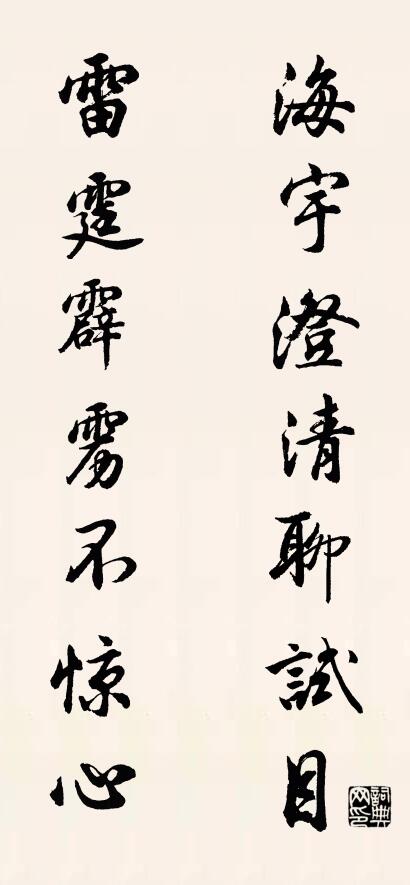 海宇澄清聊試目
雷霆霹雳不惊心
詞典网印